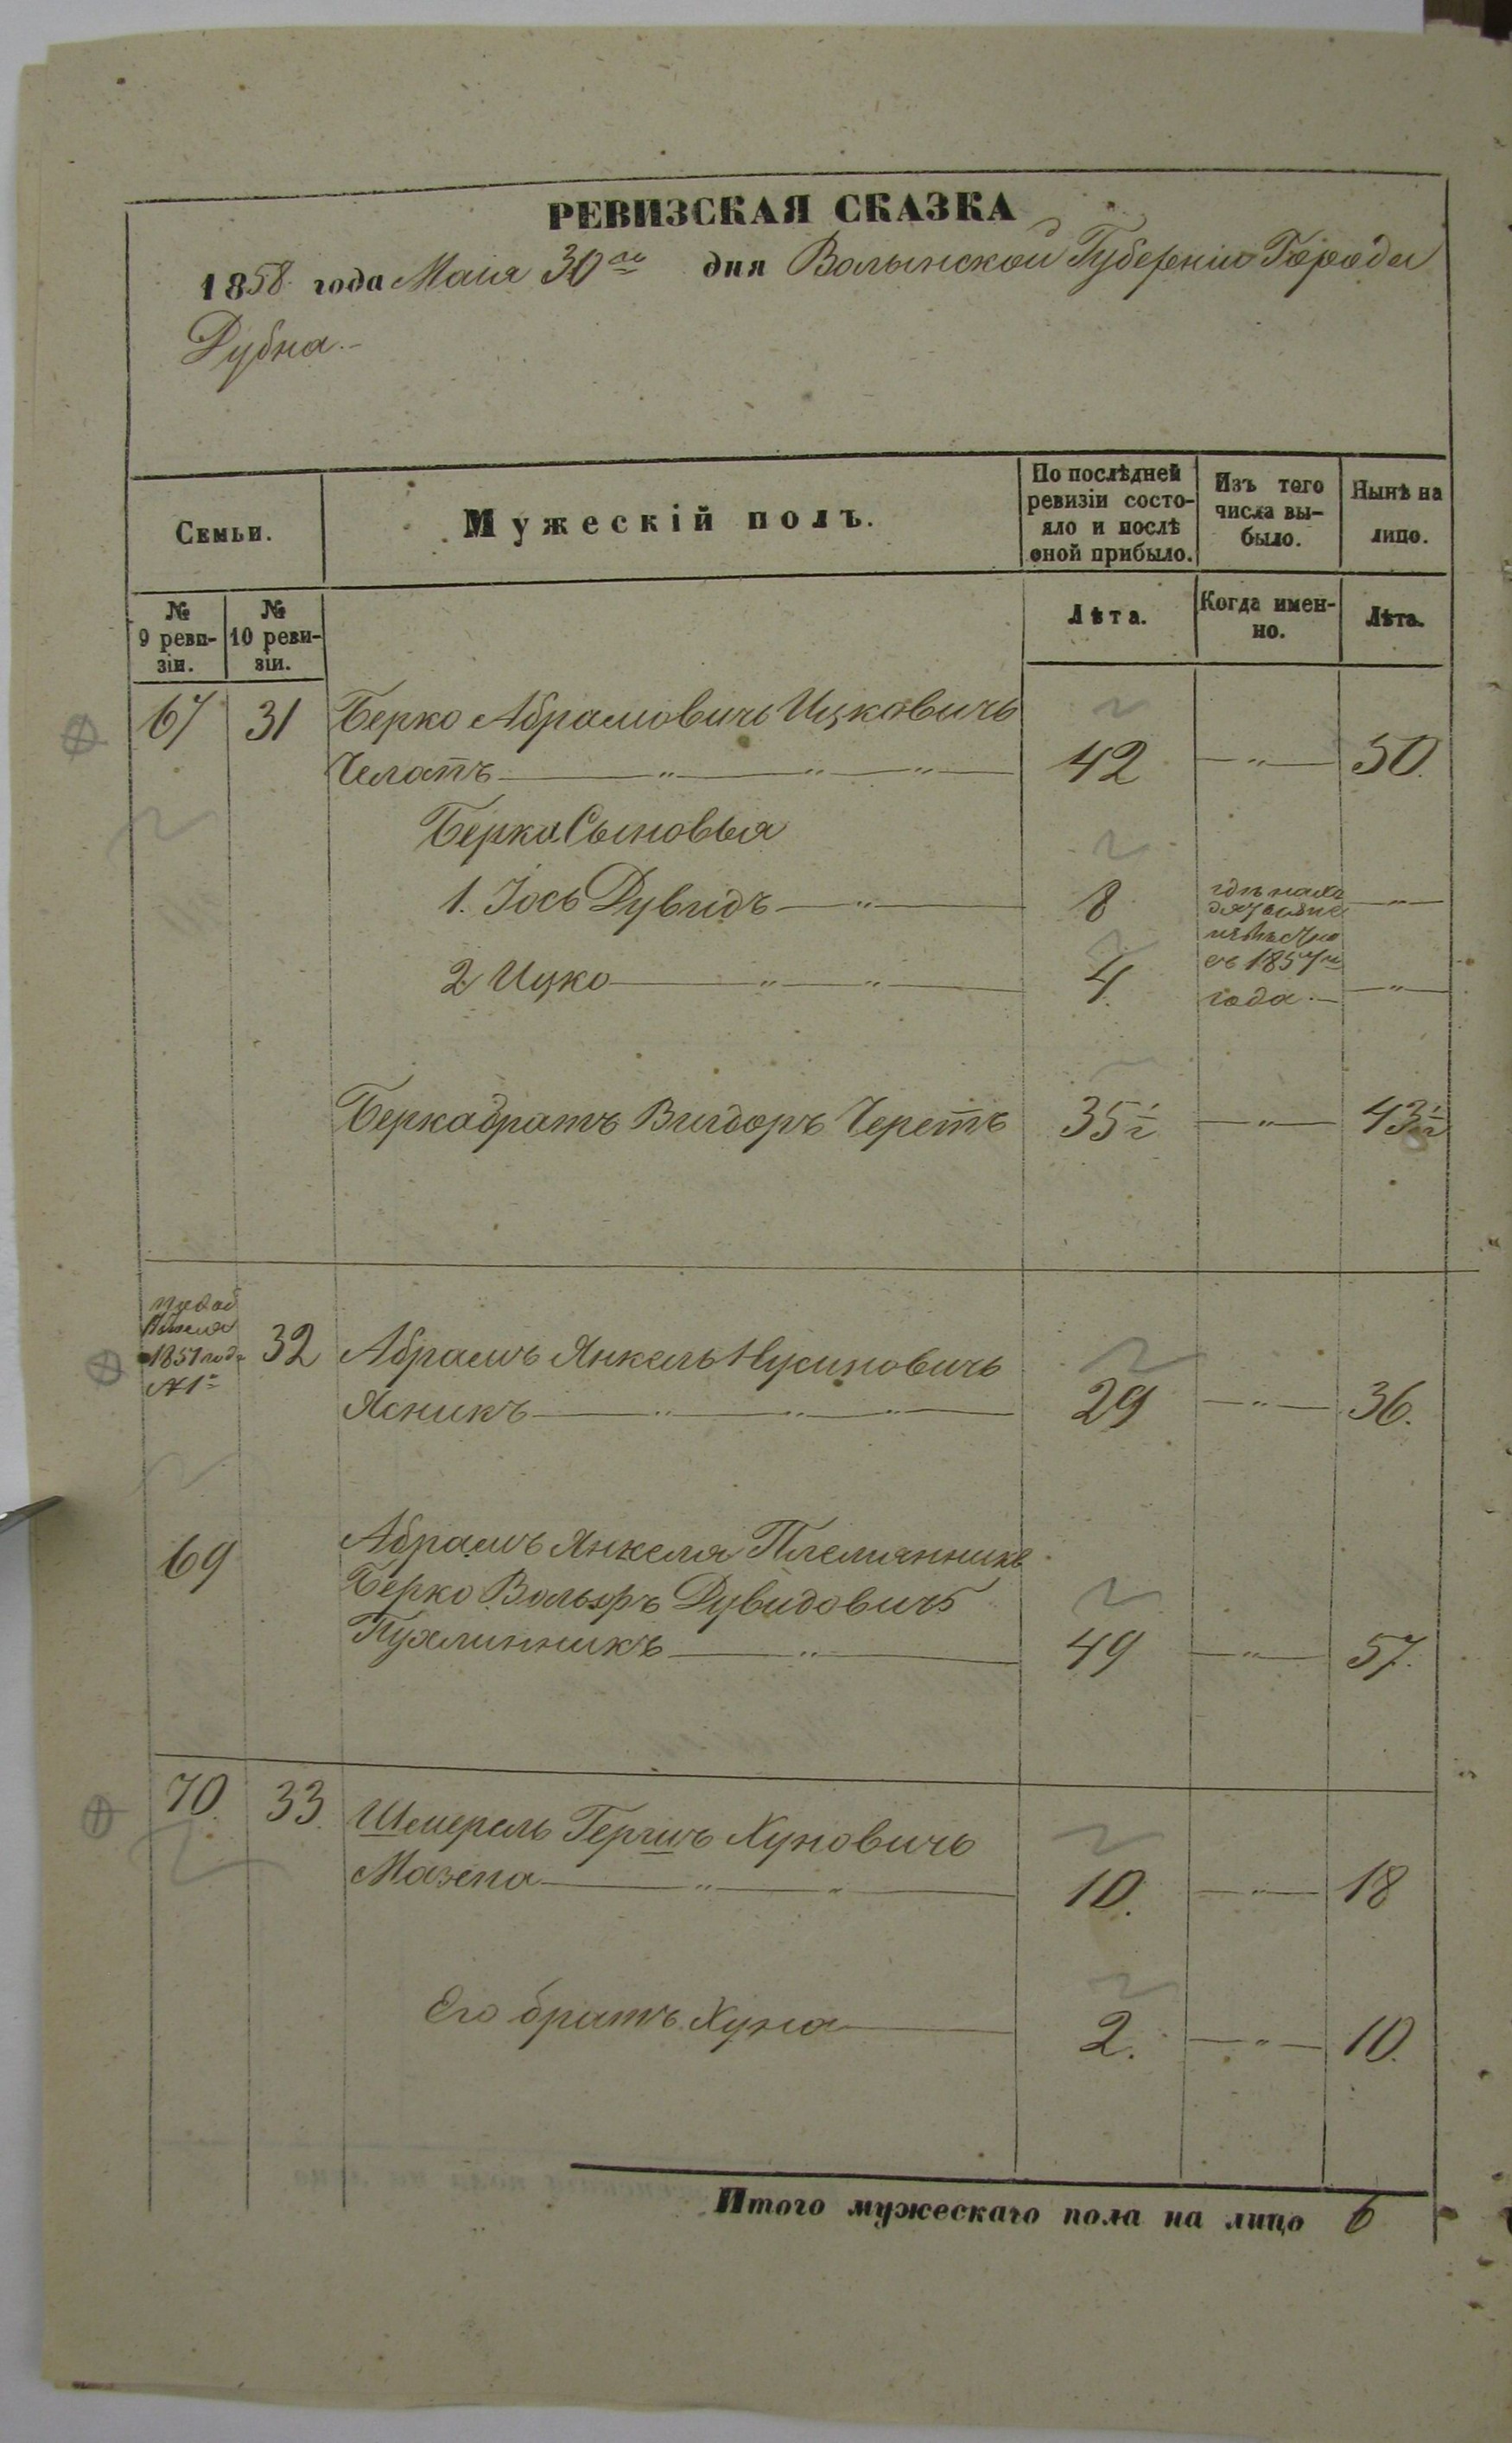 РЕВИЗСКАЯ СКАЗКА
1858 года Маия 30го дня Волынской Губерніи Города
Дубна.
Семьи.
Мужескій полъ.
По послѣдней
ревизіи состо-
яло и послѣ
оной прибыло.
Изъ того
числа вы-
было.
Нынѣ на
лицо.
№
9 реви-
зіи.
№
10 реви-
зіи.
Лѣта.
Когда имен-
но.
Лѣта.
67 31 Берко Абрамовичъ Ицковичъ
Челатъ — " — " — " — 42 — " — 50.
Берка Сыновья
1. Іось Дувидъ — " — 8 — " —
2 Ицко — " — " — 4. — " —
съ 1857го
года. —
Беркабратъ Вигдоръ Черетъ 35½ — " — 43½
1851 года
№ 1й
32 Абрамъ Янкель Нусиновичъ
Ясникъ — " — " — " — 29 — " — 36.
69 Абрамъ Янкеля Племянникъ
Берко Вольфъ Дувидовичъ
Пухлинникъ — " — 49 — " — 57.
70. 33. Шмерель Гершъ Хуновичъ
Мазепа — " — " — 10. — " — 18
Его братъ Хуна — 2. — " — 10.
Итого мужескаго пола на лицо 6